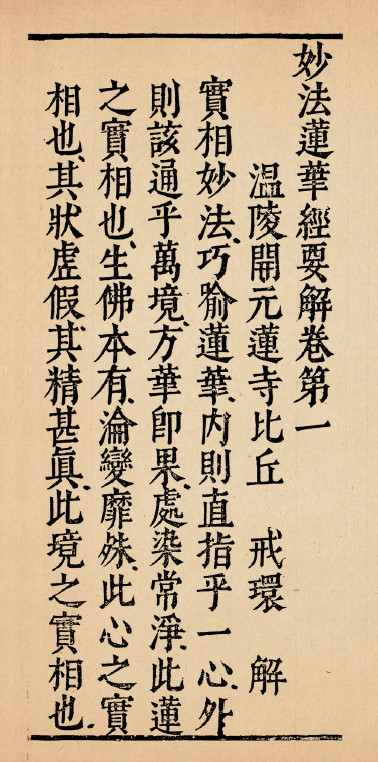 妙法蓮華經要解卷第一
温陵開元蓮寺比丘　戒環　解
實相妙法、巧喻蓮華、内則直指乎一心、外
則該通乎萬境、方華即果、處染常淨、此蓮
之實相也、生佛本有、淪變靡殊、此心之實
相也、其狀虛假、其精甚眞、此境之實相也、